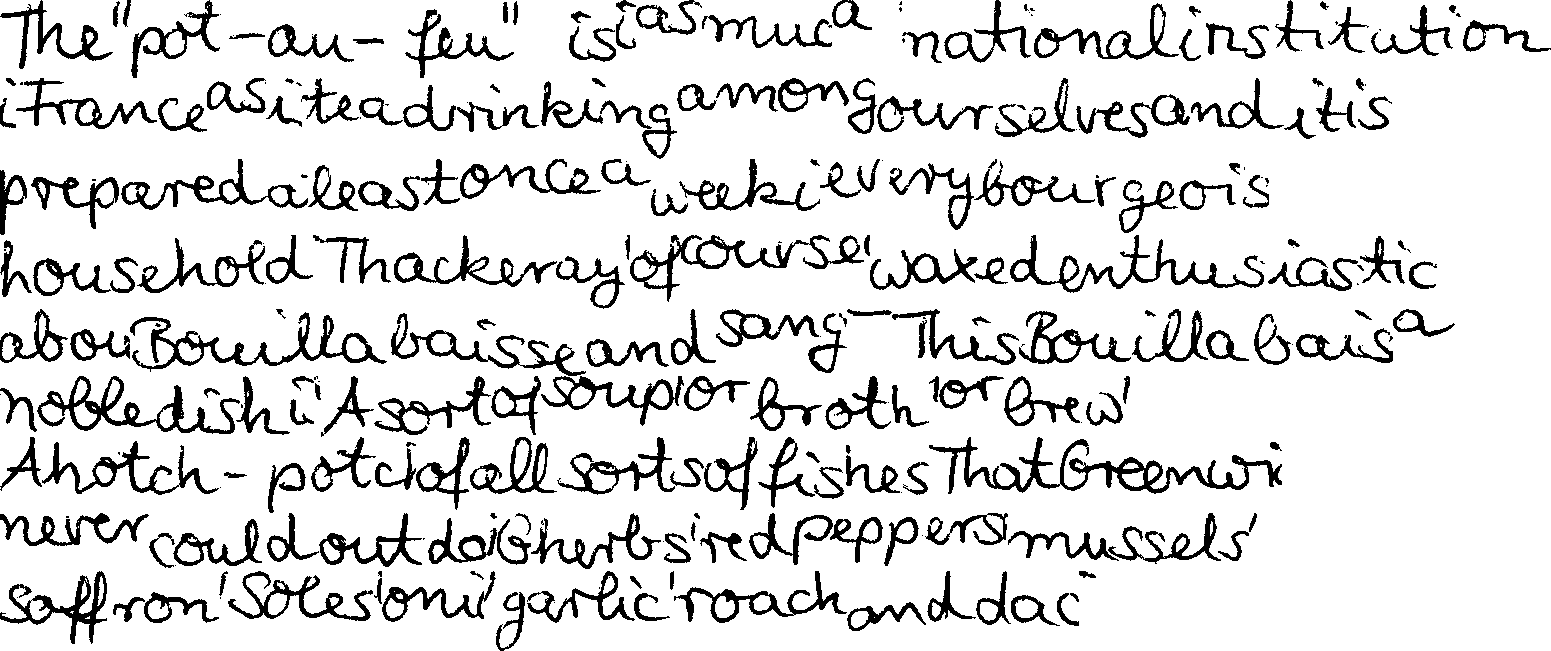 The "pot-au-feu" is i as muc a national institution
i France as i tea drinking among ourselves and it is
prepared a least once a week i every bourgeois
household Thackeray ' of course ' waxed enthusiastic
abou Bouillabaisse and sang - This Bouillabais a
noble dish i ' A sort of soup ' or broth ' or brew '
A hotch-potch of all sorts of fishes That Greenwi
never could outdo ' G herbs ' red peppers ' mussels '
saffron ' Soles ' oni ' garlic ' roach and dac